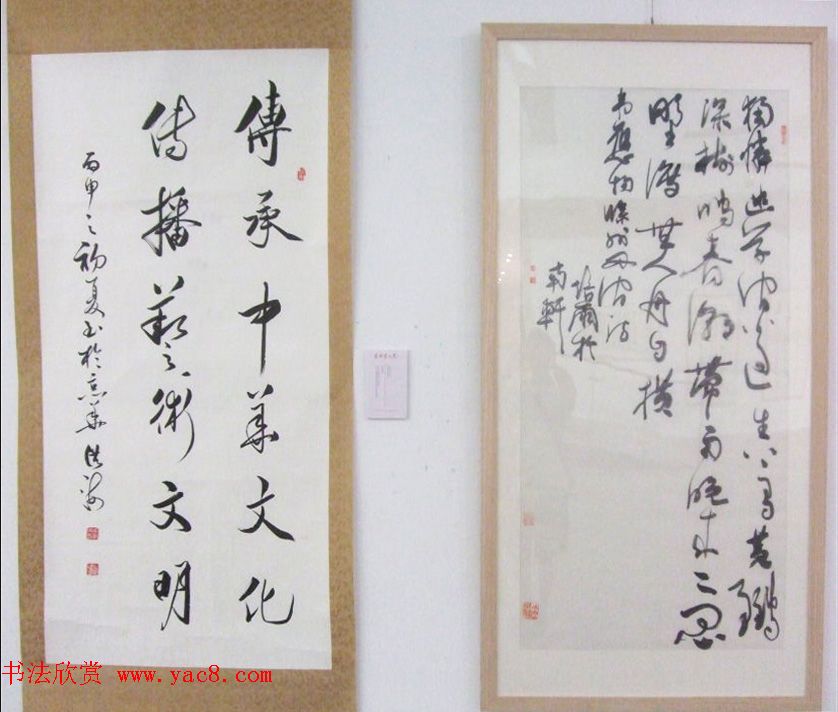 傳承中華文化
传播藝術文明
丙申之初夏书於京華
獨憐幽草澗邊生上有黄鸝
深樹鳴春潮帶雨晚来急
野渡無人舟自横
韦應物滁州西澗詩
於
南軒
书法欣赏 www.yac8.com